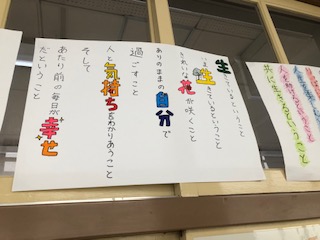 生きているということ
いま生きているということ
きれいな花が咲くこと
ありのままの自分で
過ごすこと
人と気持ちをわかりあうこと
そして
あたり前の毎日が幸せ
だということ
共に生きるということ